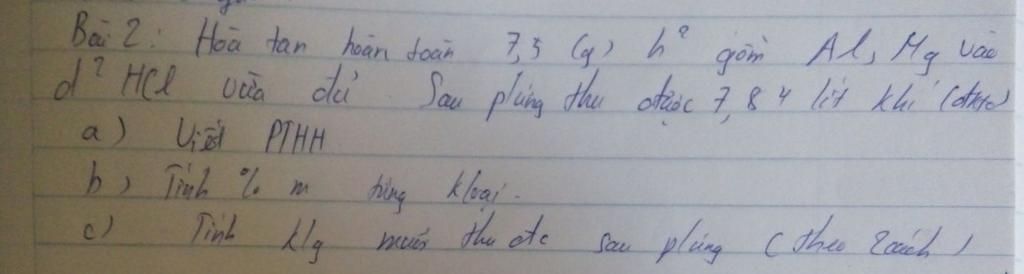 Bài 2: Hoà tan hoàn toàn 7,5 (g) h² gồm Al, Mg vào
d² HCl vừa đủ. Sau phứng thu được 7,84 lít khí (đktc)
a) Viết PTHH
b) Tính % m từng kloại.
c) Tính klg muối thu đc sau phứng (theo 2 cách)